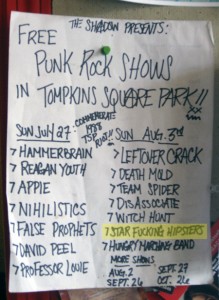 THE SHADOW PRESENTS:
FREE
PUNK ROCK SHOWS
IN TOMPKINS SQUARE PARK!!
COMMEMORATE
1988
TSP
RIOT!!
SUN JULY 27:
7 HAMMERBRAIN
7 REAGAN YOUTH
7 APPIE
7 NIHILISTICS
7 FALSE PROPHETS
7 DAVID PEEL
7 PROFESSOR LOUIE
SUN. AUG. 3rd
7 LEFTOVER CRACK
7 DEATH MOLD
7 TEAM SPIDER
7 DISASSOCIATE
7 WITCH HUNT
7 STAR FUCKING HIPSTERS
7 HUNGRY MARCHING BAND
MORE SHOWS
AUG. 2 SEPT. 27
SEPT. 26 OCT. 26